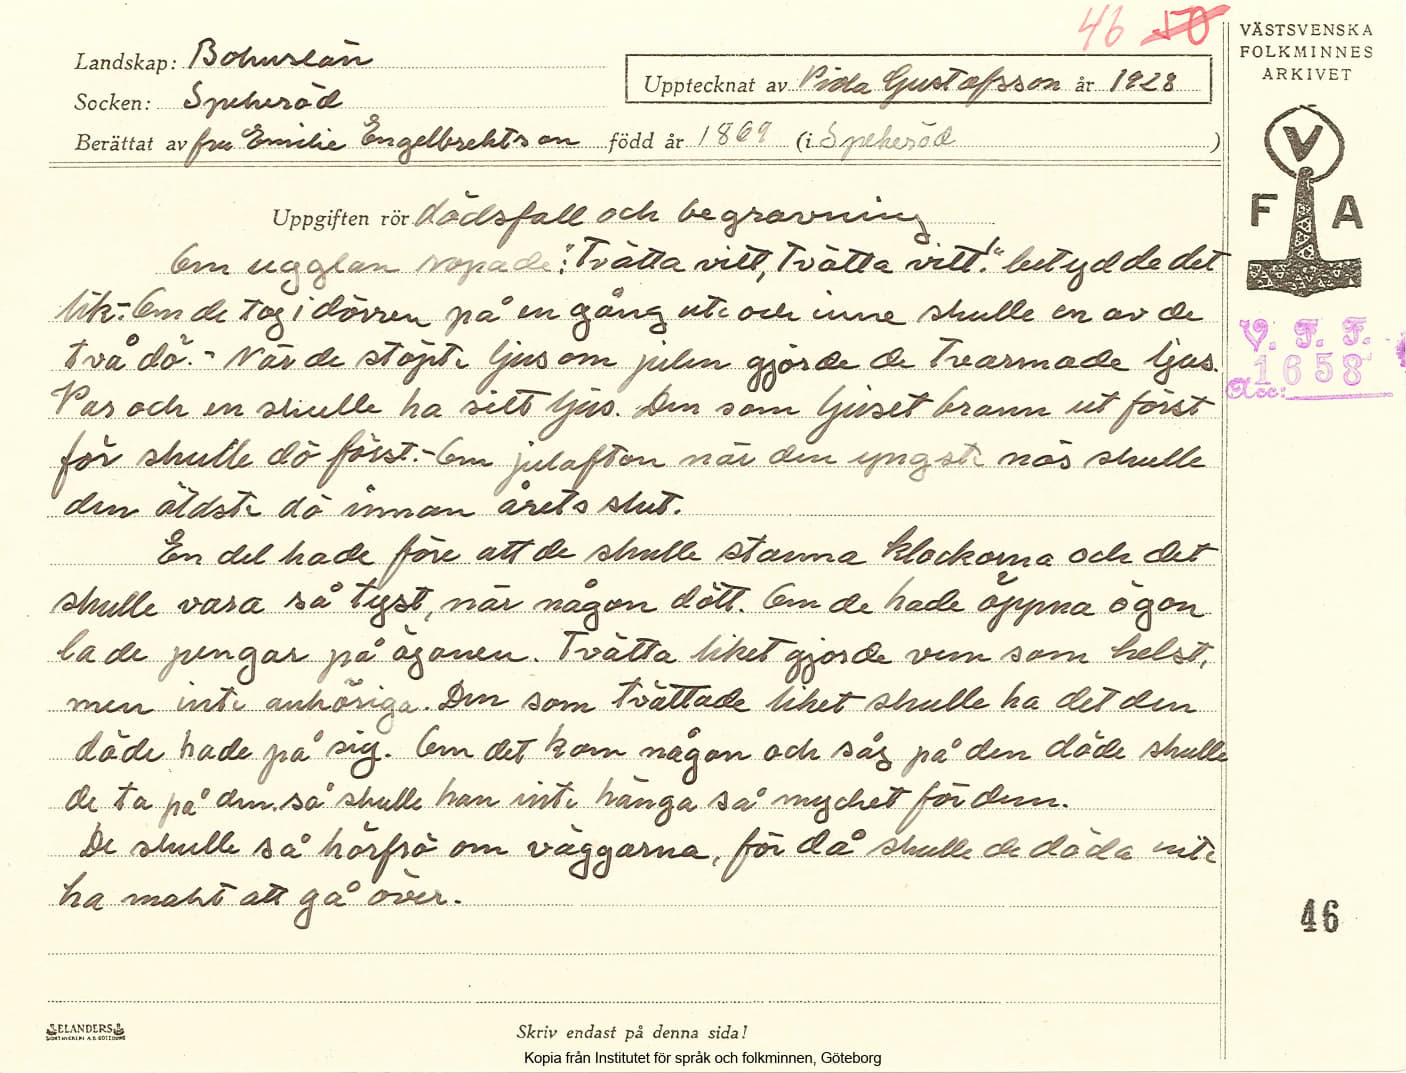 46 50
VÄSTSVENSKA
FOLKMINNES
ARKIVET
Landskap: Bohuslän
Upptecknat av Vida Gustafsson år 1928
Socken: Spekeröd
Berättat av fru Emilie Engelbrektson född år 1869 (i Spekeröd)
V
F A
Uppgiften rör dödsfall och begravning
Om ugglan ropade: "Tvätta vitt, Tvätta vitt!" betydde det
lik.- Om de tog i dörren på en gång ute och inne skulle en av de
två dö.- När de stöpte ljus om julen gjorde de tvarmade ljus.
Var och en skulle ha sitt ljus. Den som ljuset brann ut först
för skulle dö först.- Om julafton när den yngste nös skulle
den äldste dö innan årets slut.
En del hade före att de skulle stanna klockorna och det
skulle vara så tyst, när någon dött. Om de hade öppna ögon
la de pengar på ögonen. Tvätta liket gjorde vem som helst,
men inte anhöriga. Den som tvättade liket skulle ha det den
döde hade på sig. Om det kom någon och såg på den döde skulle
de ta på den, så skulle han inte hänga så mycket för dem.
De skulle så hörfrö om väggarna, för då skulle de döda inte
ha makt att gå över.
V. F. F.
Acc: 1658
46
ELANDERS
BOKTRYCKERI A.B. GÖTEBORG
Skriv endast på denna sida!
Kopia från Institutet för språk och folkminnen, Göteborg